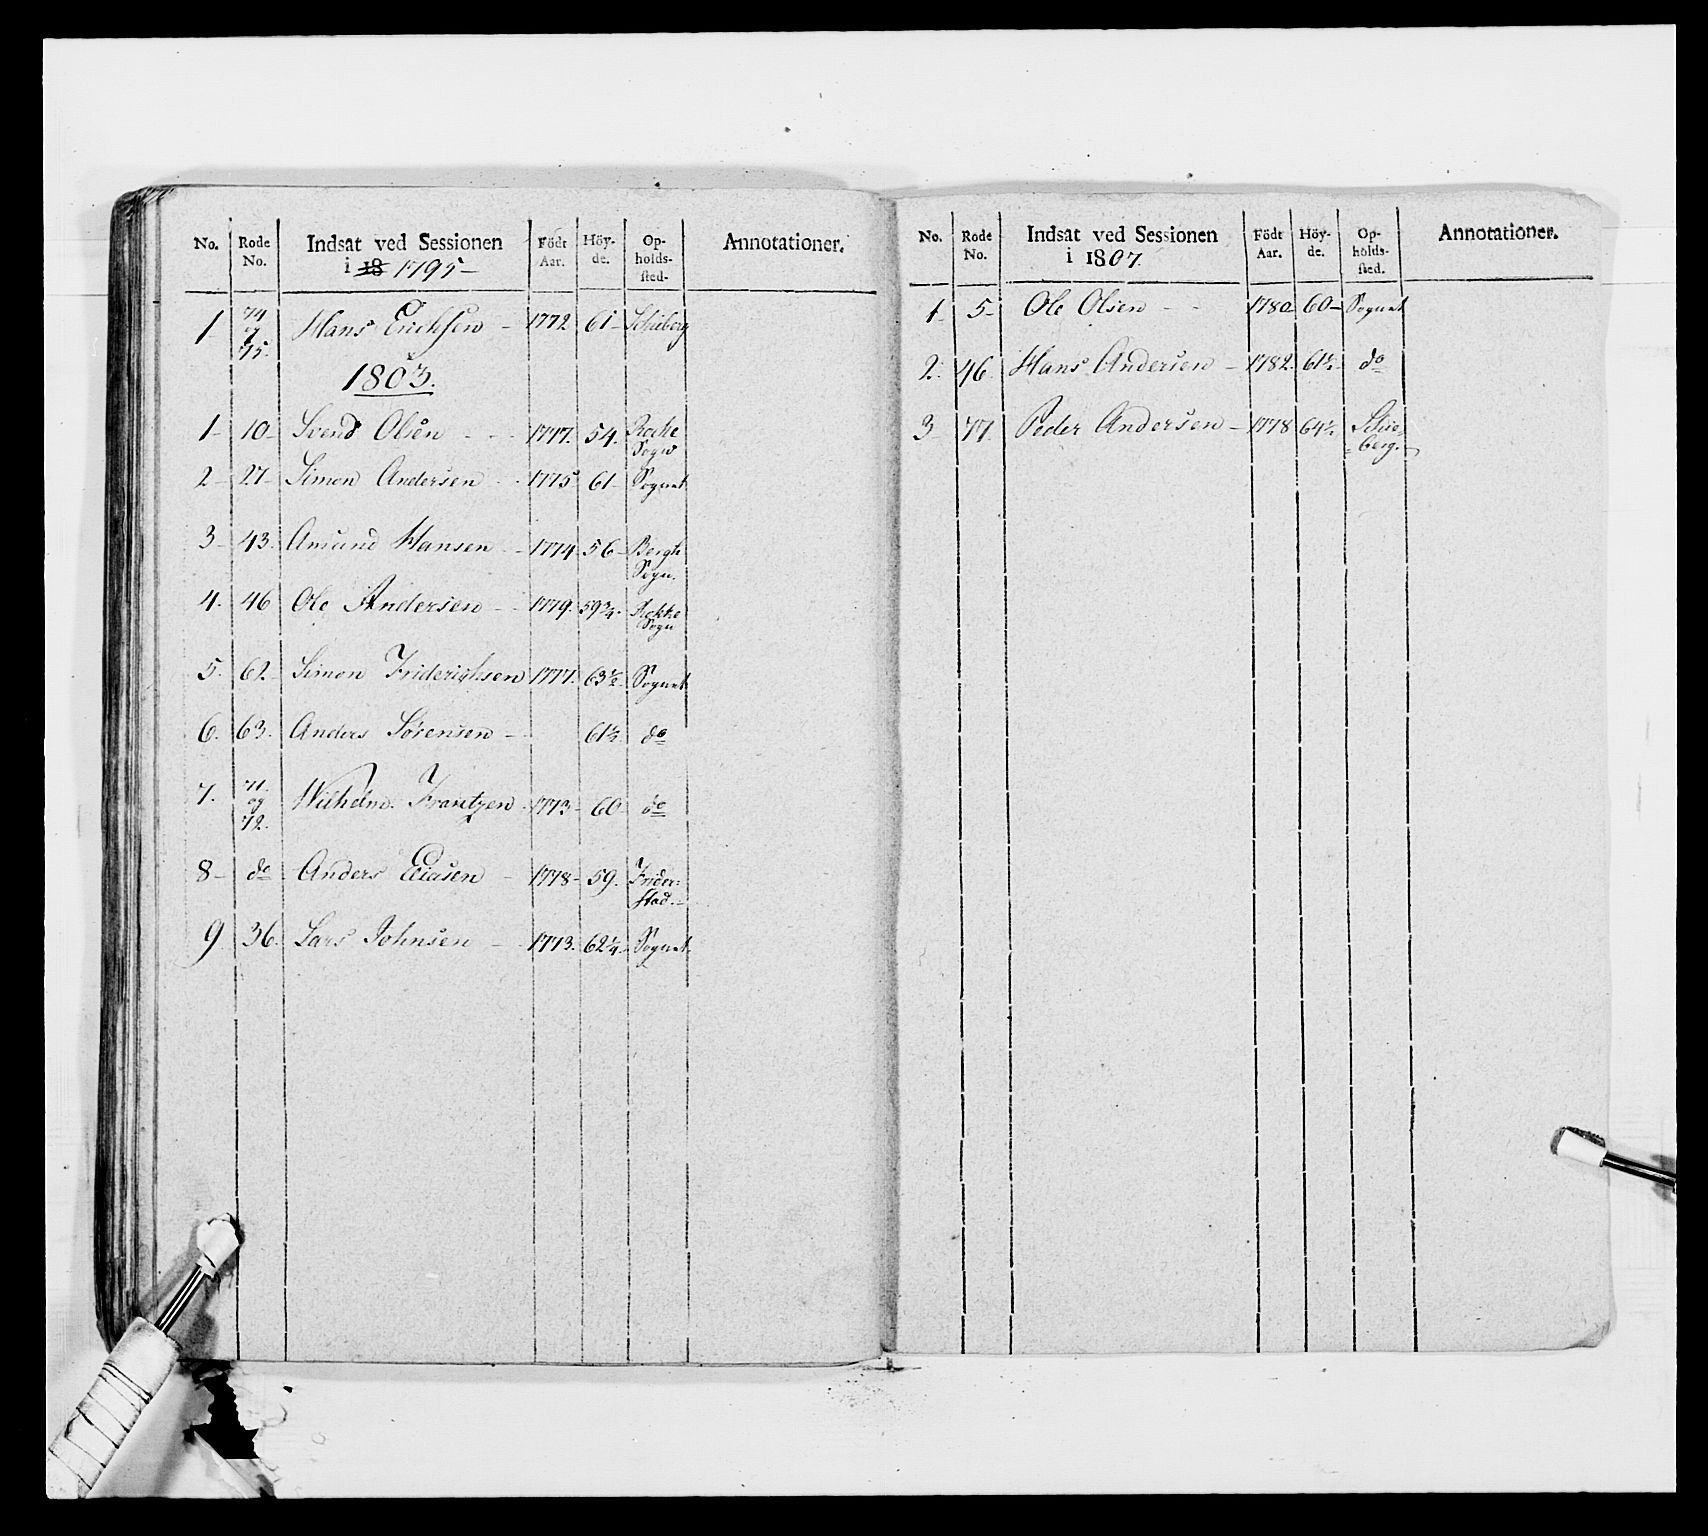 No. Rode No. Indsat ved Sessionen i 18 1795 – Födt Aar. Höy-de. Op-holds-sted- Annotationer.
1 74 og 75. Hans Ericksen – 1772 61 – Schieberg
1803.
1 – 10 – Svend Olsen - - - 1777. 54. Rocke Sogn
2 – 27 – Simon Andersen - - 1775 61 – Sognet
3 – 43. Amund Hansen - - 1774 56 – Bergh Sogn.
4. 46 Ole Andersen - - 1779. 59 3/4. Rokke Sogn
5. 62 Simon Friderichsen 1777. 63 1/2 Sognet
6. 63. Anders Sörensen - - 61 1/2 do
7. 71. og 72. Wilhelm Frantzen. 1773 – 60 do
8 – do Anders Eliasen - 1778 – 59. Frider: stad. –
9 36. Lars Johnsen – 1773. 62 1/4 Sognet
No. Rode No. Indsat ved Sessionen i 1807. Födt Aar. Höy-de. Op-holds-sted. Annotationer.
1 5 – Ole Olsen - - 1780 60 – Sognet
2. 46. Hans Andersen – 1782. 61 1/2 do
3 77 Peder Andersen – 1778 64 1/2 Skie-berg. –